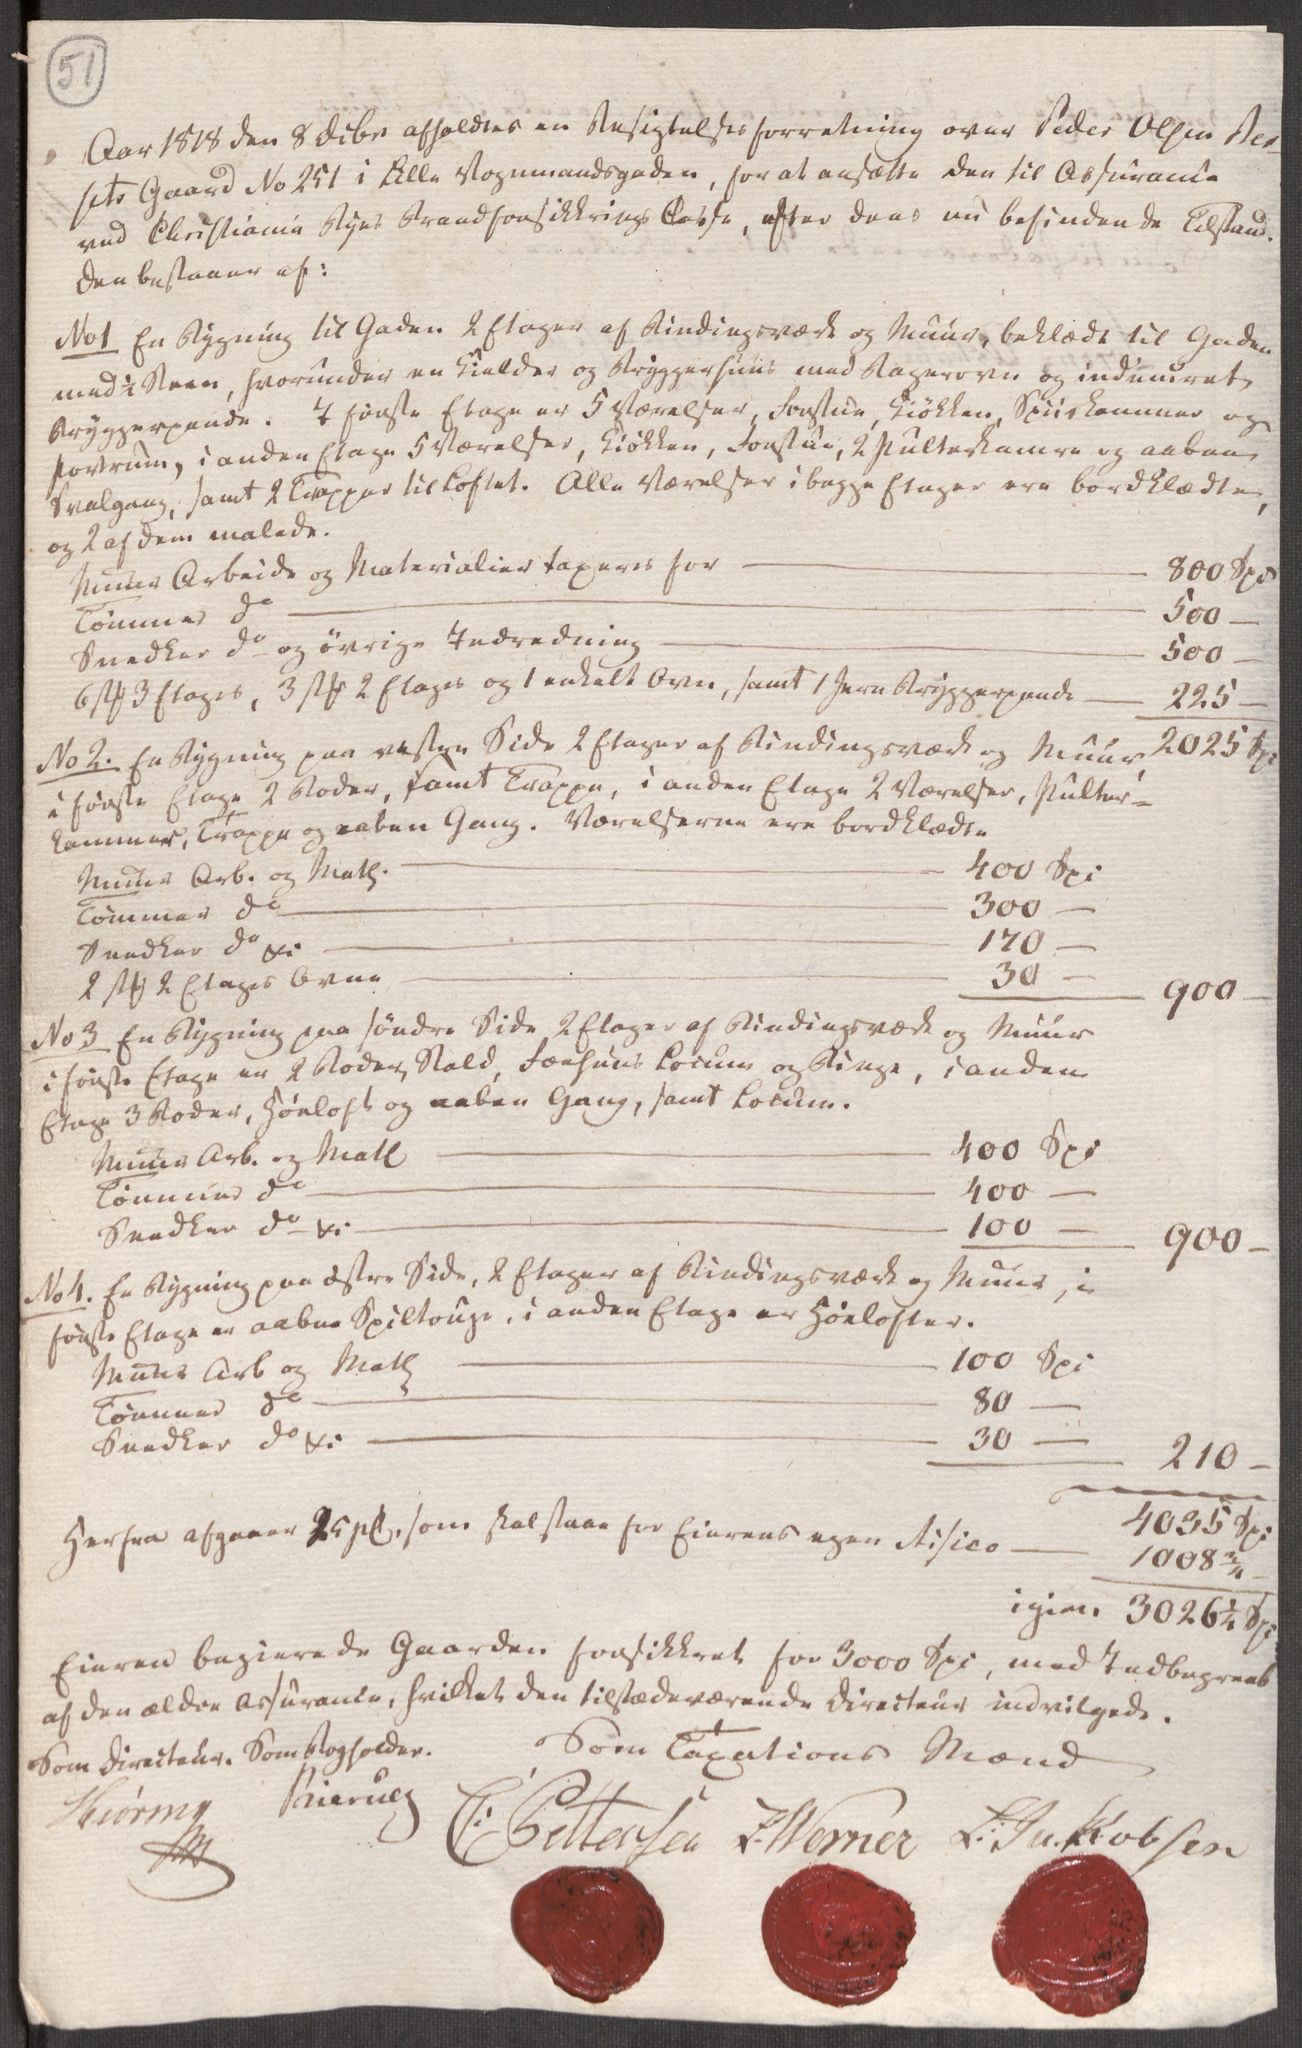 51
Aar 1818 den 8 Decbr afholdtes en Besigtelsesforretning over Peder Olsen
Gaard No 251 i Lille Vognmandsgaden, for at ansætte den til Assurance
ved Christiania Byes Brandforsikkrings Casse, efter dens nu befindende Tilstand.
Den bestaaer af:
No 1 En Bygning til Gaden 2 Etager af Bindingsværk og Muur, beklædt til Gaden
med ½ Steen, hvorunder en Kielder og Bryggerhuus med Bagerovn og indmuret
Bryggerpande. I første Etage er 5 Værelser, Forstue, Kiøkken, Spiiskammer og
Portrum, i anden Etage 5 Værelser, Kiøkken, Forstue, 2 Pulterkamre og aaben
Svalgang, samt 2 Trapper til Loftet. Alle Værelser i begge Etager ere bordklædte,
og 2 af dem malede.
Muur Arbeide og Materialier taxeres for 800 Spi
Tømmer do 500 —
Snedker do og øvrige Indredning 500 —
6 stk 3 Etages, 3 stk 2 Etages og 1 enkelt Ovn, samt 1 Jern Bryggerpande 225 —
2025 Spi
No 2. En Bygning paa vestre Side 2 Etager af Bindingsværk og Muur
i første Etage 2 Boder, samt Trappe, i anden Etage 2 Værelser, Pulter-
kammer, Trappe og aaben Gang. Værelserne ere bordklædte
Muur Arb. og Matl. 400 Spi
Tømmer do 300 —
Snedker do &c 170 —
2 stk 2 Etages Ovne 30 — 900 —
No 3 En Bygning paa søndre Side 2 Etager af Bindingsværk og Muur
i første Etage er 2 Boder, Stald, Fæehuus Locum og Binge, i anden
Etage 3 Boder, Høeloft og aaben Gang, samt Locum.
Muur Arb. og Matl 400 Spi
Tømmer do 400 —
Snedker do &c 100 — 900 —
No 4. En Bygning paa østre Side, 2 Etager af Bindingsværk og Muur, i
første Etage er aabne Spiltouge, i anden Etage er Høelofter.
Muur Arb og Matl 100 Spi
Tømmer do 80 —
Snedker do &c 30 — 210 —
4035 Spi
Herfra afgaaer 25 pCt. som skal staae for Eierens egen Risico 1008 ¾
igien. 3026 ¼ Spi
Eieren begierede Gaarden forsikkret for 3000 Spi, med Indbegreeb
af den ældre Assurance, hvilket den tilstædeværende Directeur indvilgede.
Som Directeur. Som Bogholder. Som Taxations Mænd
Kierulf C: Pettersen Z. Werner L: Jakobsen